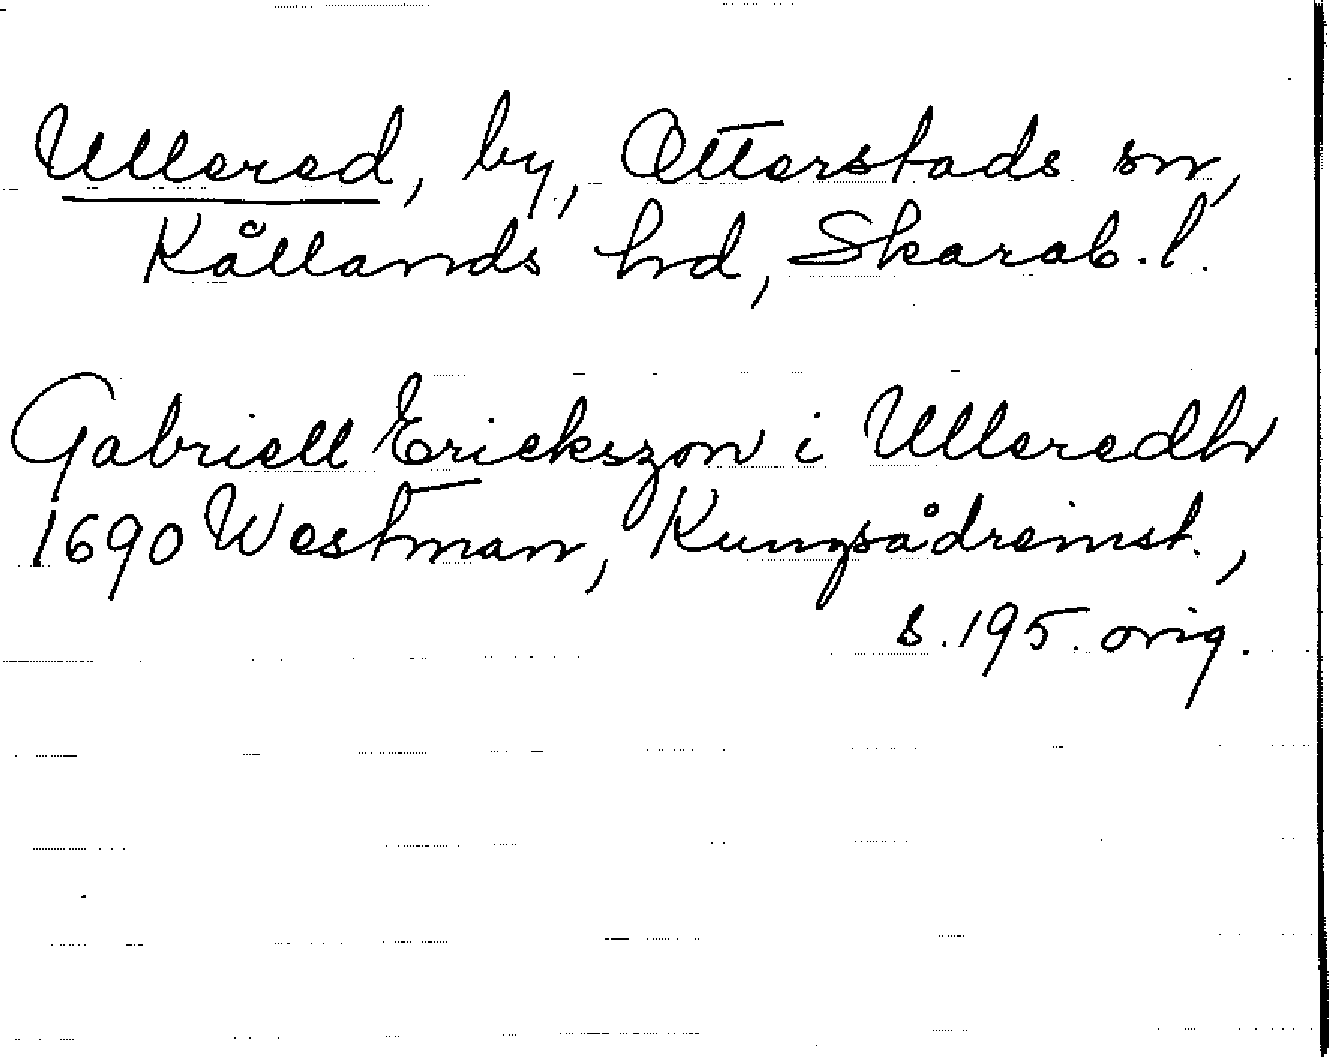 Ullered, by, Otterstads sn,
Kållands hd, Skarab. l.
Gabriell Erickszon i Ulleredh
1690 Westman, Kungsådreinst.,
s. 195. orig.